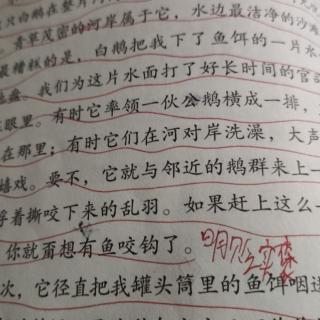 青草茂密的河岸属于它，水边最洁净的沙滩
最糟糕的是，白鹅把我下了鱼饵的一片水
地盘。我们为这片水面打了好长时间的官司
眼里。有时它率领一伙公鹅横成一排，
在那里；有时它们在河对岸洗澡，大声
嬉戏。要不，它就与邻近的鹅群来上一
浮着撕咬下来的乱羽。如果赶上这么一
你就甭想有鱼咬钩了。
次，它径直把我罐头筒里的鱼饵咽进